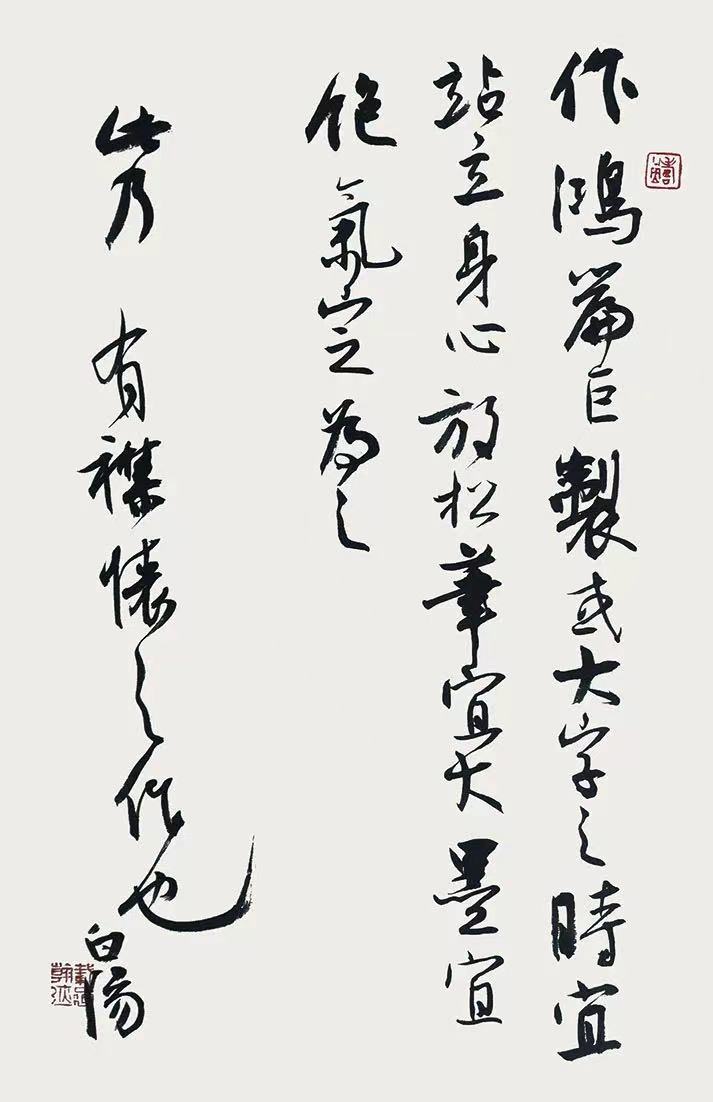 作鴻篇巨製或大字之時宜
站立身心放松筆宜大墨宜
飽氣定為之
此乃 有襟懷之作也
白陽